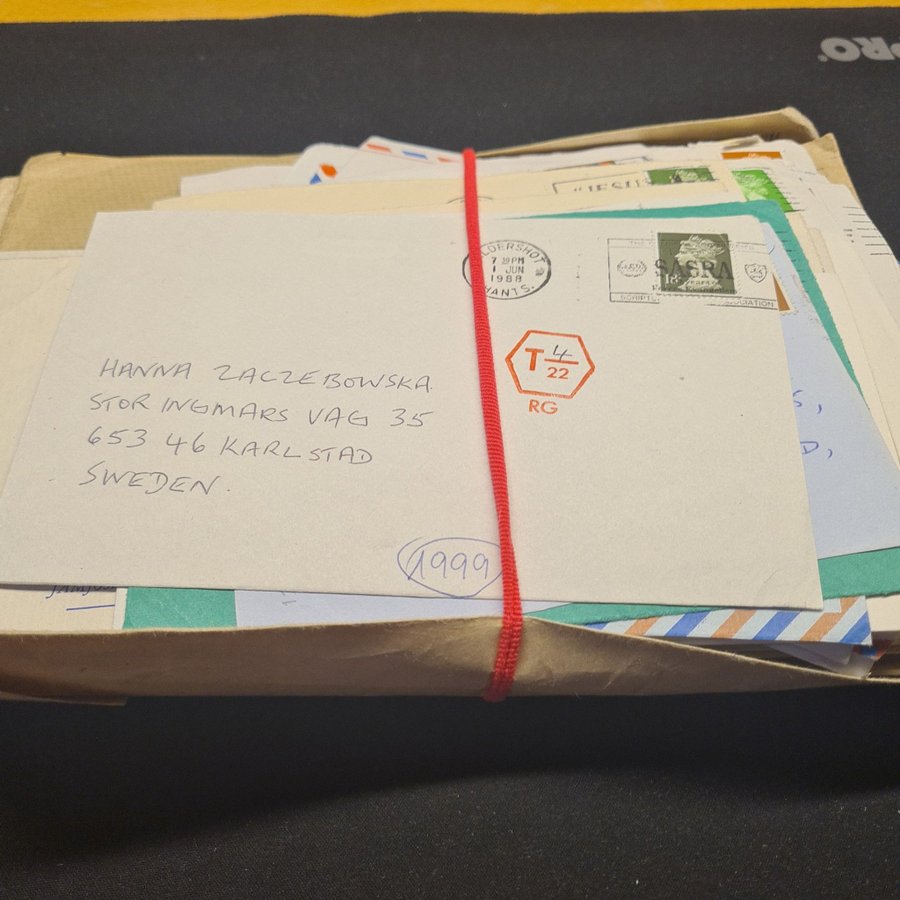 PRO
"JESUS
ALDERSHOT
7 30PM
1 JUN
1988
HANTS.
SASRA
T 4/22
RG
HANNA ZACZEBOWSKA.
STOR INGMARS VAG 35
653 46 KARLSTAD
SWEDEN.
1999